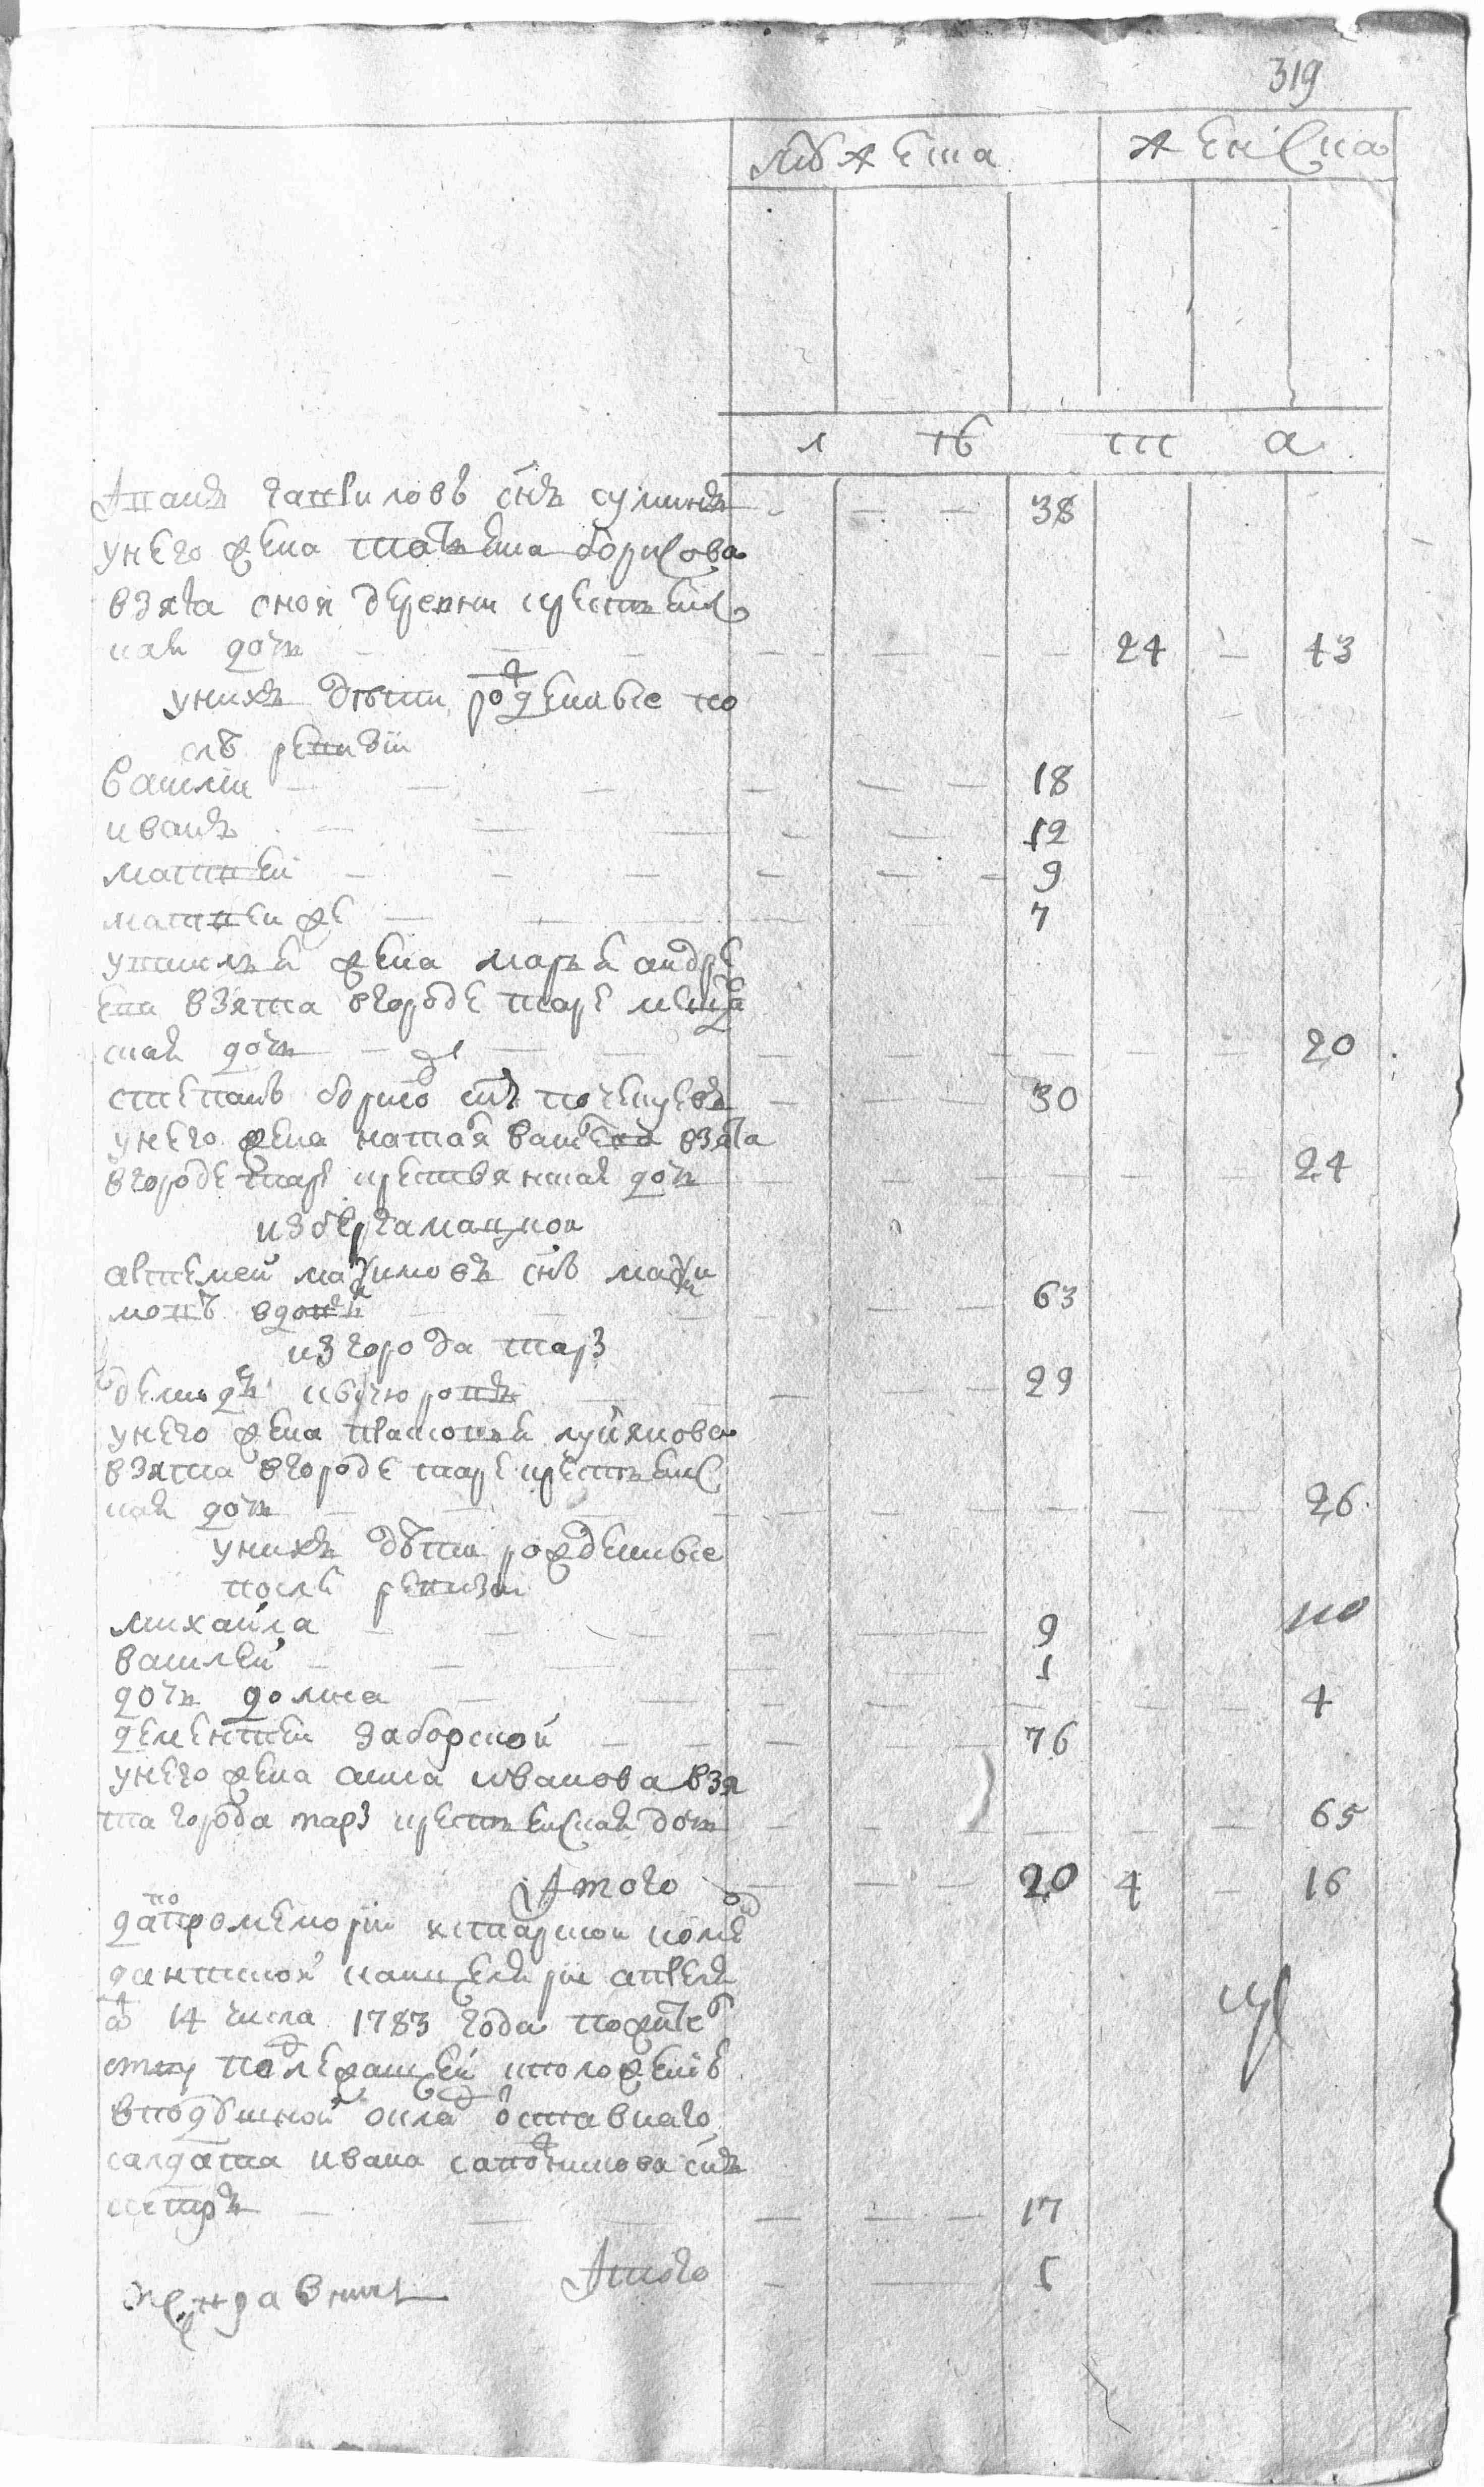 319
мужеска женска
л ѣ т а
иванъ гавриловъ снъ сулинъ 38
унего жена татьяна борисова
взята оной деревни крестьенс
кая дочь 24 43
унихъ дѣти рожденные по
слѣ ревизiи
василiи 18
иванъ 12
матвеи 9
матвеи же 7
увасилья жена марья андре
ева взята вгороде таре меща
ская дочь 20
степанъ борисо снъ 30
унего жена наталя васиева взята
вгороде таре крестьянская дочь 24
из
артемей максимовъ снъ макси
мовъ вдовый 63
из города тары
демидъ 29
унего жена прасковья лукянова
взята вгороде таре крестьенс
кая дочь 26
унихъ дѣти рожденные
после ревизiи
михаила 9
василей 1
дочь домна 4
дементеи заборской 76
унего жена анна иванова взя
та города тары крестьенская дочь 65
Итого 20 4 16
да по промеморiи ктарской коме
дантской канцелярiи апреля
от 14 числа 1783 года
подлежащей кположенiю
вподушной оклад отставнаго
салдата ивана снъ
петръ 17
Итого 1